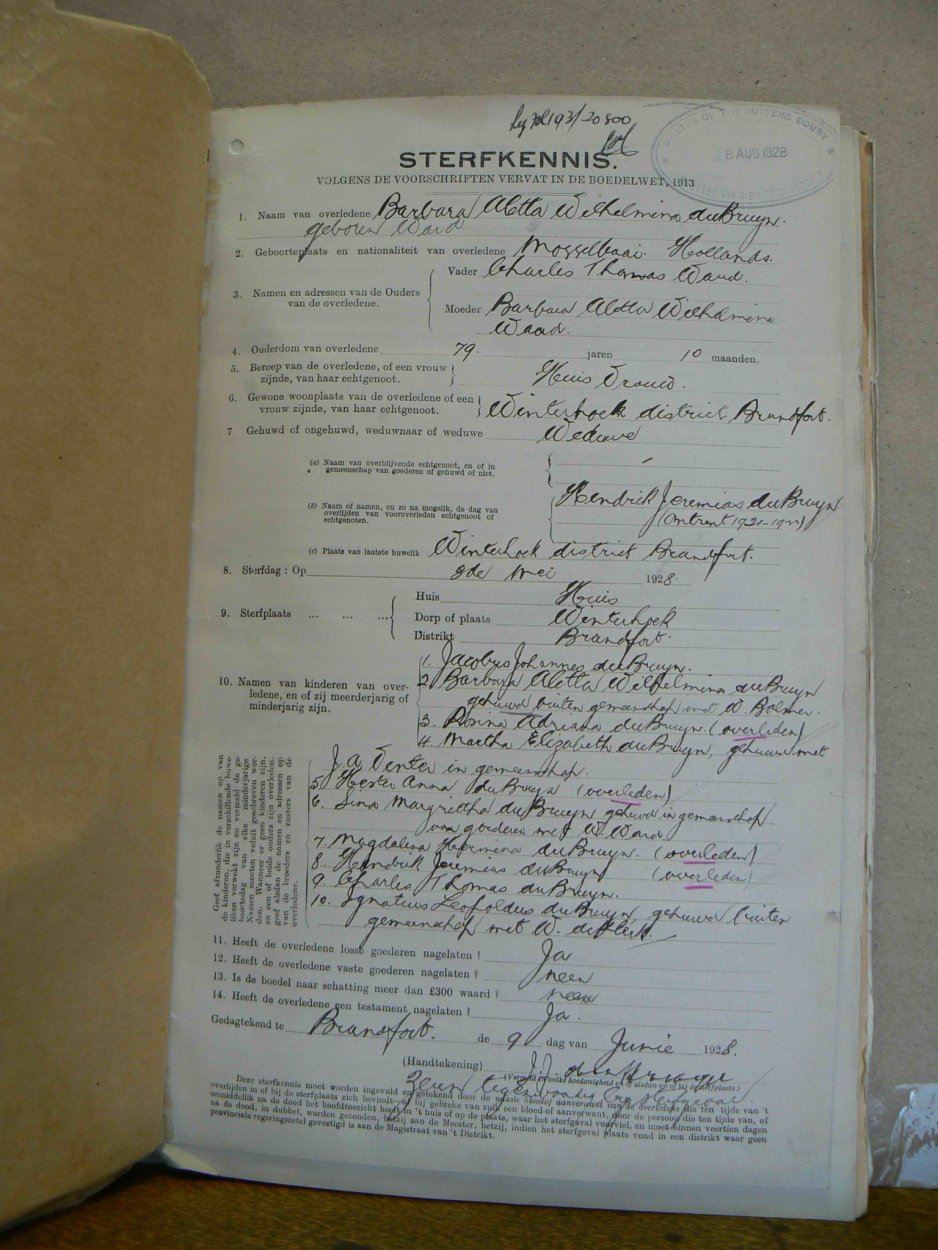 20800
MASTER OF THE SUPREME COURT
8 AUG 1928
STERFKENNIS.
VOLGENS DE VOORSCHRIFTEN VERVAT IN DE BOEDELWET, 1913
1. Naam van overledene Barbara Aletta Wilhelmina du Bruyn.
geboren Ward.
2. Geboorteplaats en nationaliteit van overledene Mosselbaai. Hollands.
3. Namen en adressen van de Ouders van de overledene.
Vader Charles Thomas Ward.
Moeder Barbara Aletta Wilhelmina
Waard.
4. Ouderdom van overledene 79. jaren 10 maanden.
5. Beroep van de overledene, of een vrouw
zijnde, van haar echtgenoot.
Huis Vrouw.
6. Gewone woonplaats van de overledene of een
vrouw zijnde, van haar echtgenoot.
Winterhoek district Brandfort.
7 Gehuwd of ongehuwd, weduwnaar of weduwe Weduwe
(a) Naam van overblijvende echtgenoot, en of in
gemeenschap van goederen of gehuwd of niet.
(b) Naam of namen, en zo na mogelik, de dag van
overlijden van vooroverleden echtgenoot of
echtgenoten.
Hendrik Jeremias du Bruyn
(Omtrent 1921-1922)
(c) Plaats van laatste huwelik Winterhoek district Brandfort.
8. Sterfdag : Op 9de Mei 1928
9. Sterfplaats ... ... ...
Huis Huis
Dorp of plaats Winterhoek
Distrikt Brandfort.
10. Namen van kinderen van over-
ledene, en of zij meerderjarig of
minderjarig zijn.
1. Jacobus Johannes du Bruyn.
2. Barbara Aletta Wilhelmina du Bruyn
gehuwd buiten gemeenschap met W. Bolmer.
3. Rosina Adriana du Bruyn. (overleden)
4. Martha Elizabeth du Bruyn, gehuwd met
J. A. Venter in gemeenschap.
5. Hester Anna du Bruyn (overleden)
6. Lina Margrettha du Bruyn gehuwd in gemeenschap
van goederen met W. Ward.
7. Magdelena Hermina du Bruyn. (overleden)
8. Hendrik Jeremias du Bruyn (overleden)
9. Charles Thomas du Bruyn.
10. Ignatius Leopoldus du Bruyn, gehuwd buiten
gemeenschap met W. de Klerk.
Geef afzonderlik de namen op van
de kinderen, die in verschillende huwe-
liken verwekt zijn en vermeld de ge-
boortedag van elke minderjarige
Namen moeten voluit geschreven wor-
den. Wanneer er geen kinderen zijn,
en een of beide ouders zijn overleden,
geef alsdan de namen en adressen op
van de broeders en zusters van de
overledene.
11. Heeft de overledene losse goederen nagelaten ? Ja
12. Heeft de overledene vaste goederen nagelaten ? neen
13. Is de boedel naar schatting meer dan £300 waard ? neen
14. Heeft de overledene een testament nagelaten ? Ja.
Gedagtekend te Brandfort. de 9 dag van Junie 1928.
(Handtekening)
(Vermeld in welke hoedanigheid en of alsdan of of bij de sterfplaats.)
Zeun tegenwoordig bij sterfgeval
Deze sterfkennis moet worden ingevuld en getekend door de naaste bloedof aanverwant van de overledene die ten tijde van 't
overlijden in of bij de sterfplaats zich bevindt of bij gebreke van zulk een bloed-of aanverwant, door de persoon die ten tijde van, of
onmiddelik na de dood het hoofdtoezicht heeft in 't huis of op de plaats, waar het sterfgeval voorviel, en moet binnen veertien dagen
na de dood, in dubbel, worden gezonden, hetzij aan de Meester, hetzij, indien het sterfgeval plaats vond in een distrikt waar geen
provinciale regeringszetel gevestigd is aan de Magistraat van 't Distrikt.